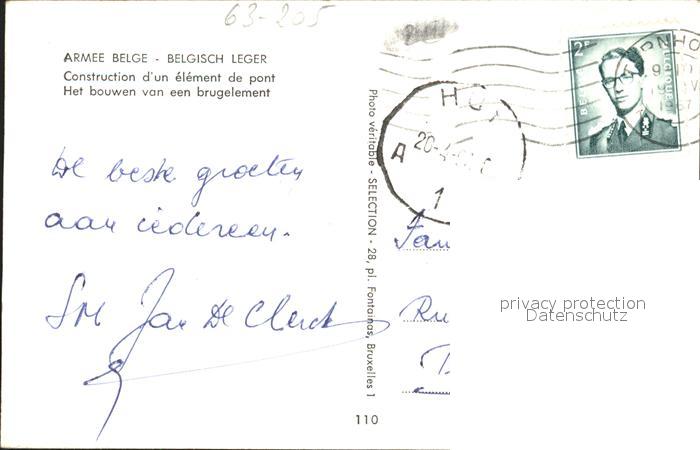 63-205
ARMEE BELGE - BELGISCH LEGER
Construction d'un élément de pont
Het bouwen van een brugelement
De beste groeten
aan iedereen.
Jan De Clerck
Photo véritable - SELECTION - 28, pl. Fontainas, Bruxelles 1
110
2F
A
1
privacy protection
Datenschutz